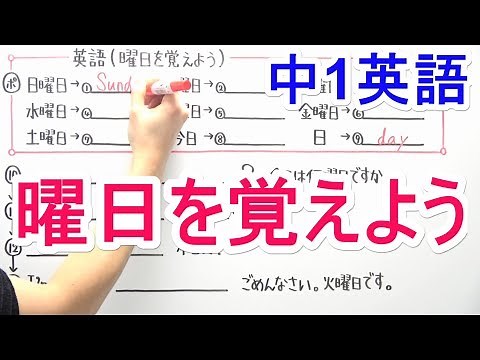 英語(曜日を覚えよう)
中1英語
ポ 日曜日→① Sund 曜日→②
水曜日→④ 金曜日→⑥
土曜日→⑦ 今日→⑧ 日→ day
⑩ 曜日ですか
曜日を覚えよう
⑫
ごめんなさい。火曜日です。